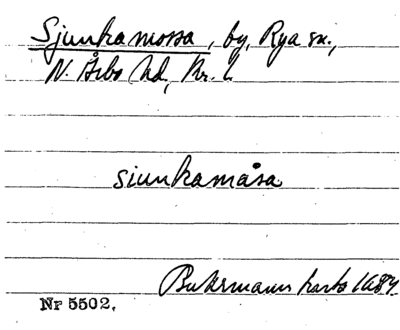 Sjunkamossa, by, Rya sn.,
N. Åsbo hd, Kr. l.
siunkamåsa
Buhrmanns karta 1684.
Nr 5502.